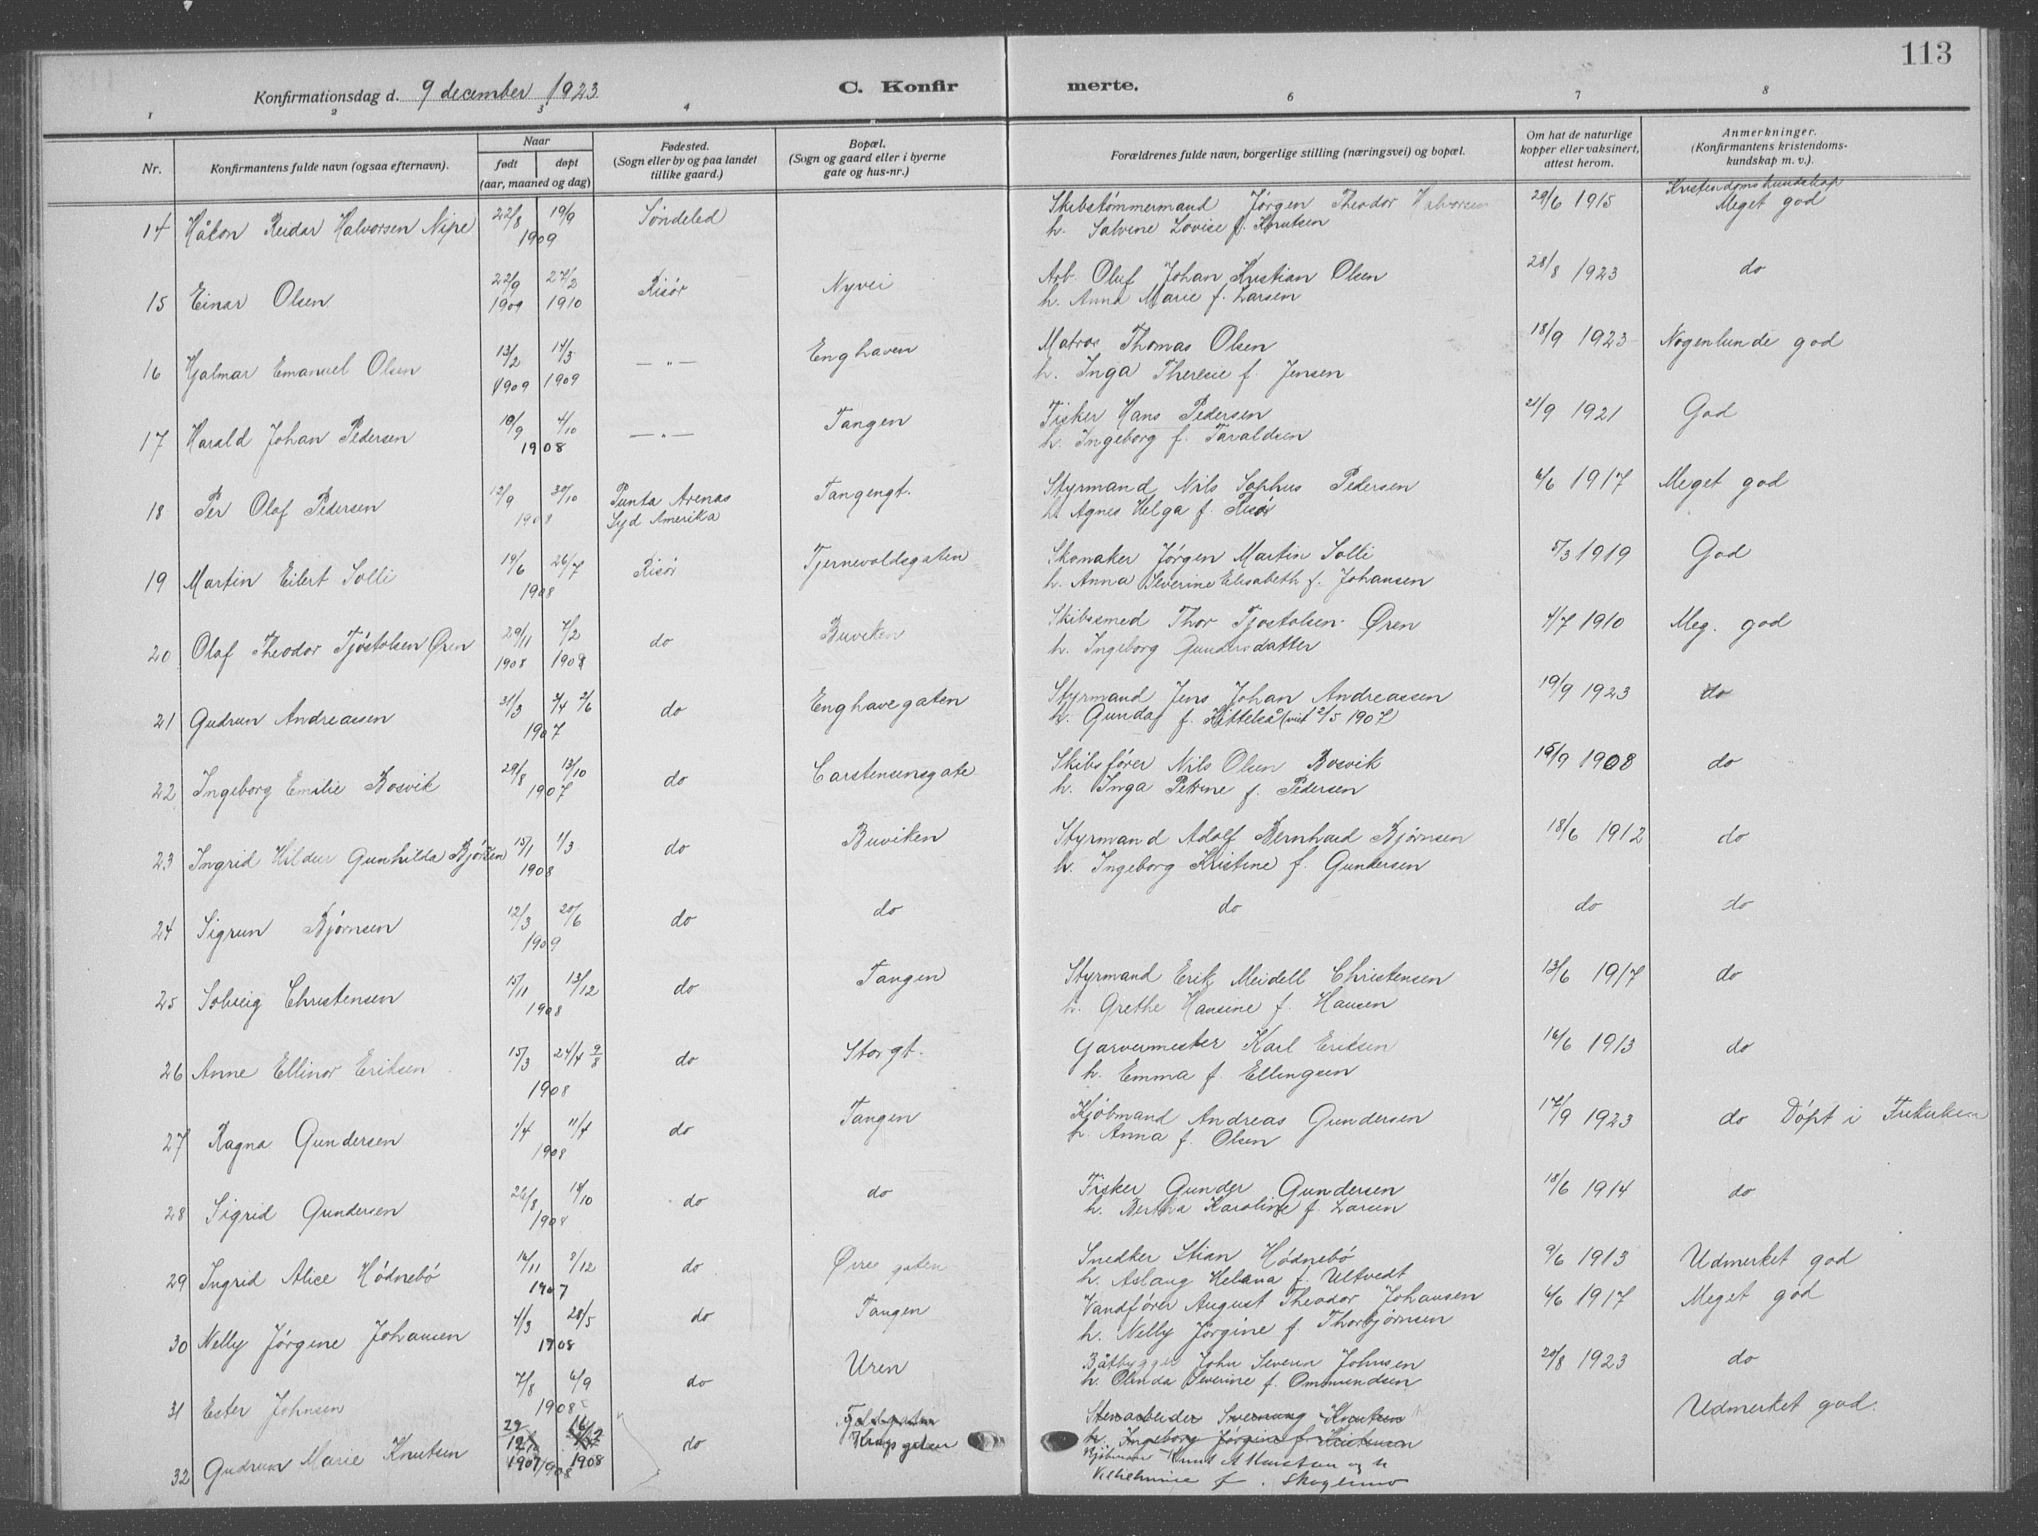 113
Konfirmationsdag d. 9 december 1923
C. Konfir merte.
1 2 3 4 6 7 8
Nr.
Konfirmantens fulde navn (ogsaa efternavn).
Naar
født døpt
(aar, maaned og dag)
Fødested.
(Sogn eller by og paa landet
tillike gaard.)
Bopæl.
(Sogn og gaard eller i byerne
gate og hus-nr.)
Forældrenes fulde navn, borgerlige stilling (næringsvei) og bopæl.
Om hat de naturlige
kopper eller vaksinert,
attest herom.
Anmerkninger.
(Konfirmantens kristendoms-
kundskap m. v.).
14 Håkon Reidar Halvorsen Nipe 22/8 19/9 1909 Søndeled
Skibstømmermand Jørgen Theodor Halvorsen
h. Salvine Lovise f. Knutsen
29/6 1915 Kristendomskundskap
Meget god
15 Einar Olsen 22/9 1909 27/2 1910 Risør Nyvei
Arb. Oluf Johan Kristian Olsen
h. Anna Marie f. Larsen
28/8 1923 do
16 Hjalmar Emanuel Olsen 13/2 1909 14/3 1909 — " — Enghaven
Matros Thomas Olsen
h. Inga Theresie f. Jensen
18/9 1923 Nogenlunde god
17 Harald Johan Pedersen 10/9 4/10 1908 — " — Tangen
Fisker Hans Pedersen
h. Ingeborg f. Taraldsen
21/9 1921 God
18 Per Olaf Pedersen 12/9 30/10 1908 Punta Arenas
Syd Amerika
Tangengt.
Styrmand Nils Sophus Pedersen
h. Agnes Helga f. Risør
6/6 1917 Meget god
19 Martin Eilert Solli 19/6 26/7 1908 Risør Tjernevoldsgaten
Skomaker Jørgen Martin Solli
h. Anna Severine Elisabeth f. Johansen
5/3 1919 God
20 Olaf Theodor Tjøstolsen Øren 29/11 1908 7/2 1908 do Buviken
Skibssmed Thor Tjostolsen Øren
h. Ingeborg Gundersdatter
4/7 1910 Meg. god
21 Gudrun Andreassen 31/3 2/6 1907 do Enghavegaten
Styrmand Jens Johan Andreassen
h. Gunda f. Kittelså (vit 2/5 1907)
19/9 1923 do
22 Ingeborg Emilie Bosvik 29/8 13/10 1907 do Carstensensgate
Skibsfører Nils Olsen Bosvik
h. Inga Petrine f. Pedersen
15/9 1908 do
23 Ingrid Hildur Gunhilda Bjørnsen 15/1 1/3 1908 do Buviken
Styrmand Adolf Bernhard Bjørnsen
h. Ingeborg Kristine f. Gundersen
18/6 1912 do
24 Sigrun Bjørnsen 12/3 20/6 1909 do do do do do
25 Solveig Christensen 15/11 13/12 1908 do Tangen
Styrmand Erik Meidell Christensen
h. Grethe Hansine f. Hansen
13/6 1917 do
26 Anne Ellinor Eriksen 15/3 24/4 9/8 1908 do Storgt.
Garvermester Karl Eriksen
h. Emma f. Ellingsen
16/6 1913 do
27 Ragna Gundersen 1/4 11/4 1908 do Tangen
Kjøbmand Andreas Gundersen
h. Anna f. Olsen
17/9 1923 do Døpt i Frikirken
28 Sigrid Gundersen 26/8 18/10 1908 do do
Fisker Gunder Gundersen
h. Bertha Karoline f. Larsen
18/6 1914 do
29 Ingrid Alice Hødnebø 16/11 8/12 1907 do Øvregaten
Snedker Stian Hødnebø
h. Aslaug Helana f. Ultvedt
9/6 1913 Udmerket god
30 Nelly Jørgine Johansen 4/3 28/5 1908 do Tangen
Vandfører August Theodor Johansen
h. Nelly Jørgine f. Thorbjørnsen
6/6 1917 Meget god
31 Ester Johnsen 7/8 6/9 1908 do Uren
Båtbygger John Severin Johnsen
h. Olinda Severine f. Ommundsen
20/8 1923 do
32 Gudrun Marie Knutsen 1907 1908 do
Stenarbeider Knutsen
h. Ingeborg Jørgine f. Kristensen
Knut
f. Skoglimo
Udmerket god.